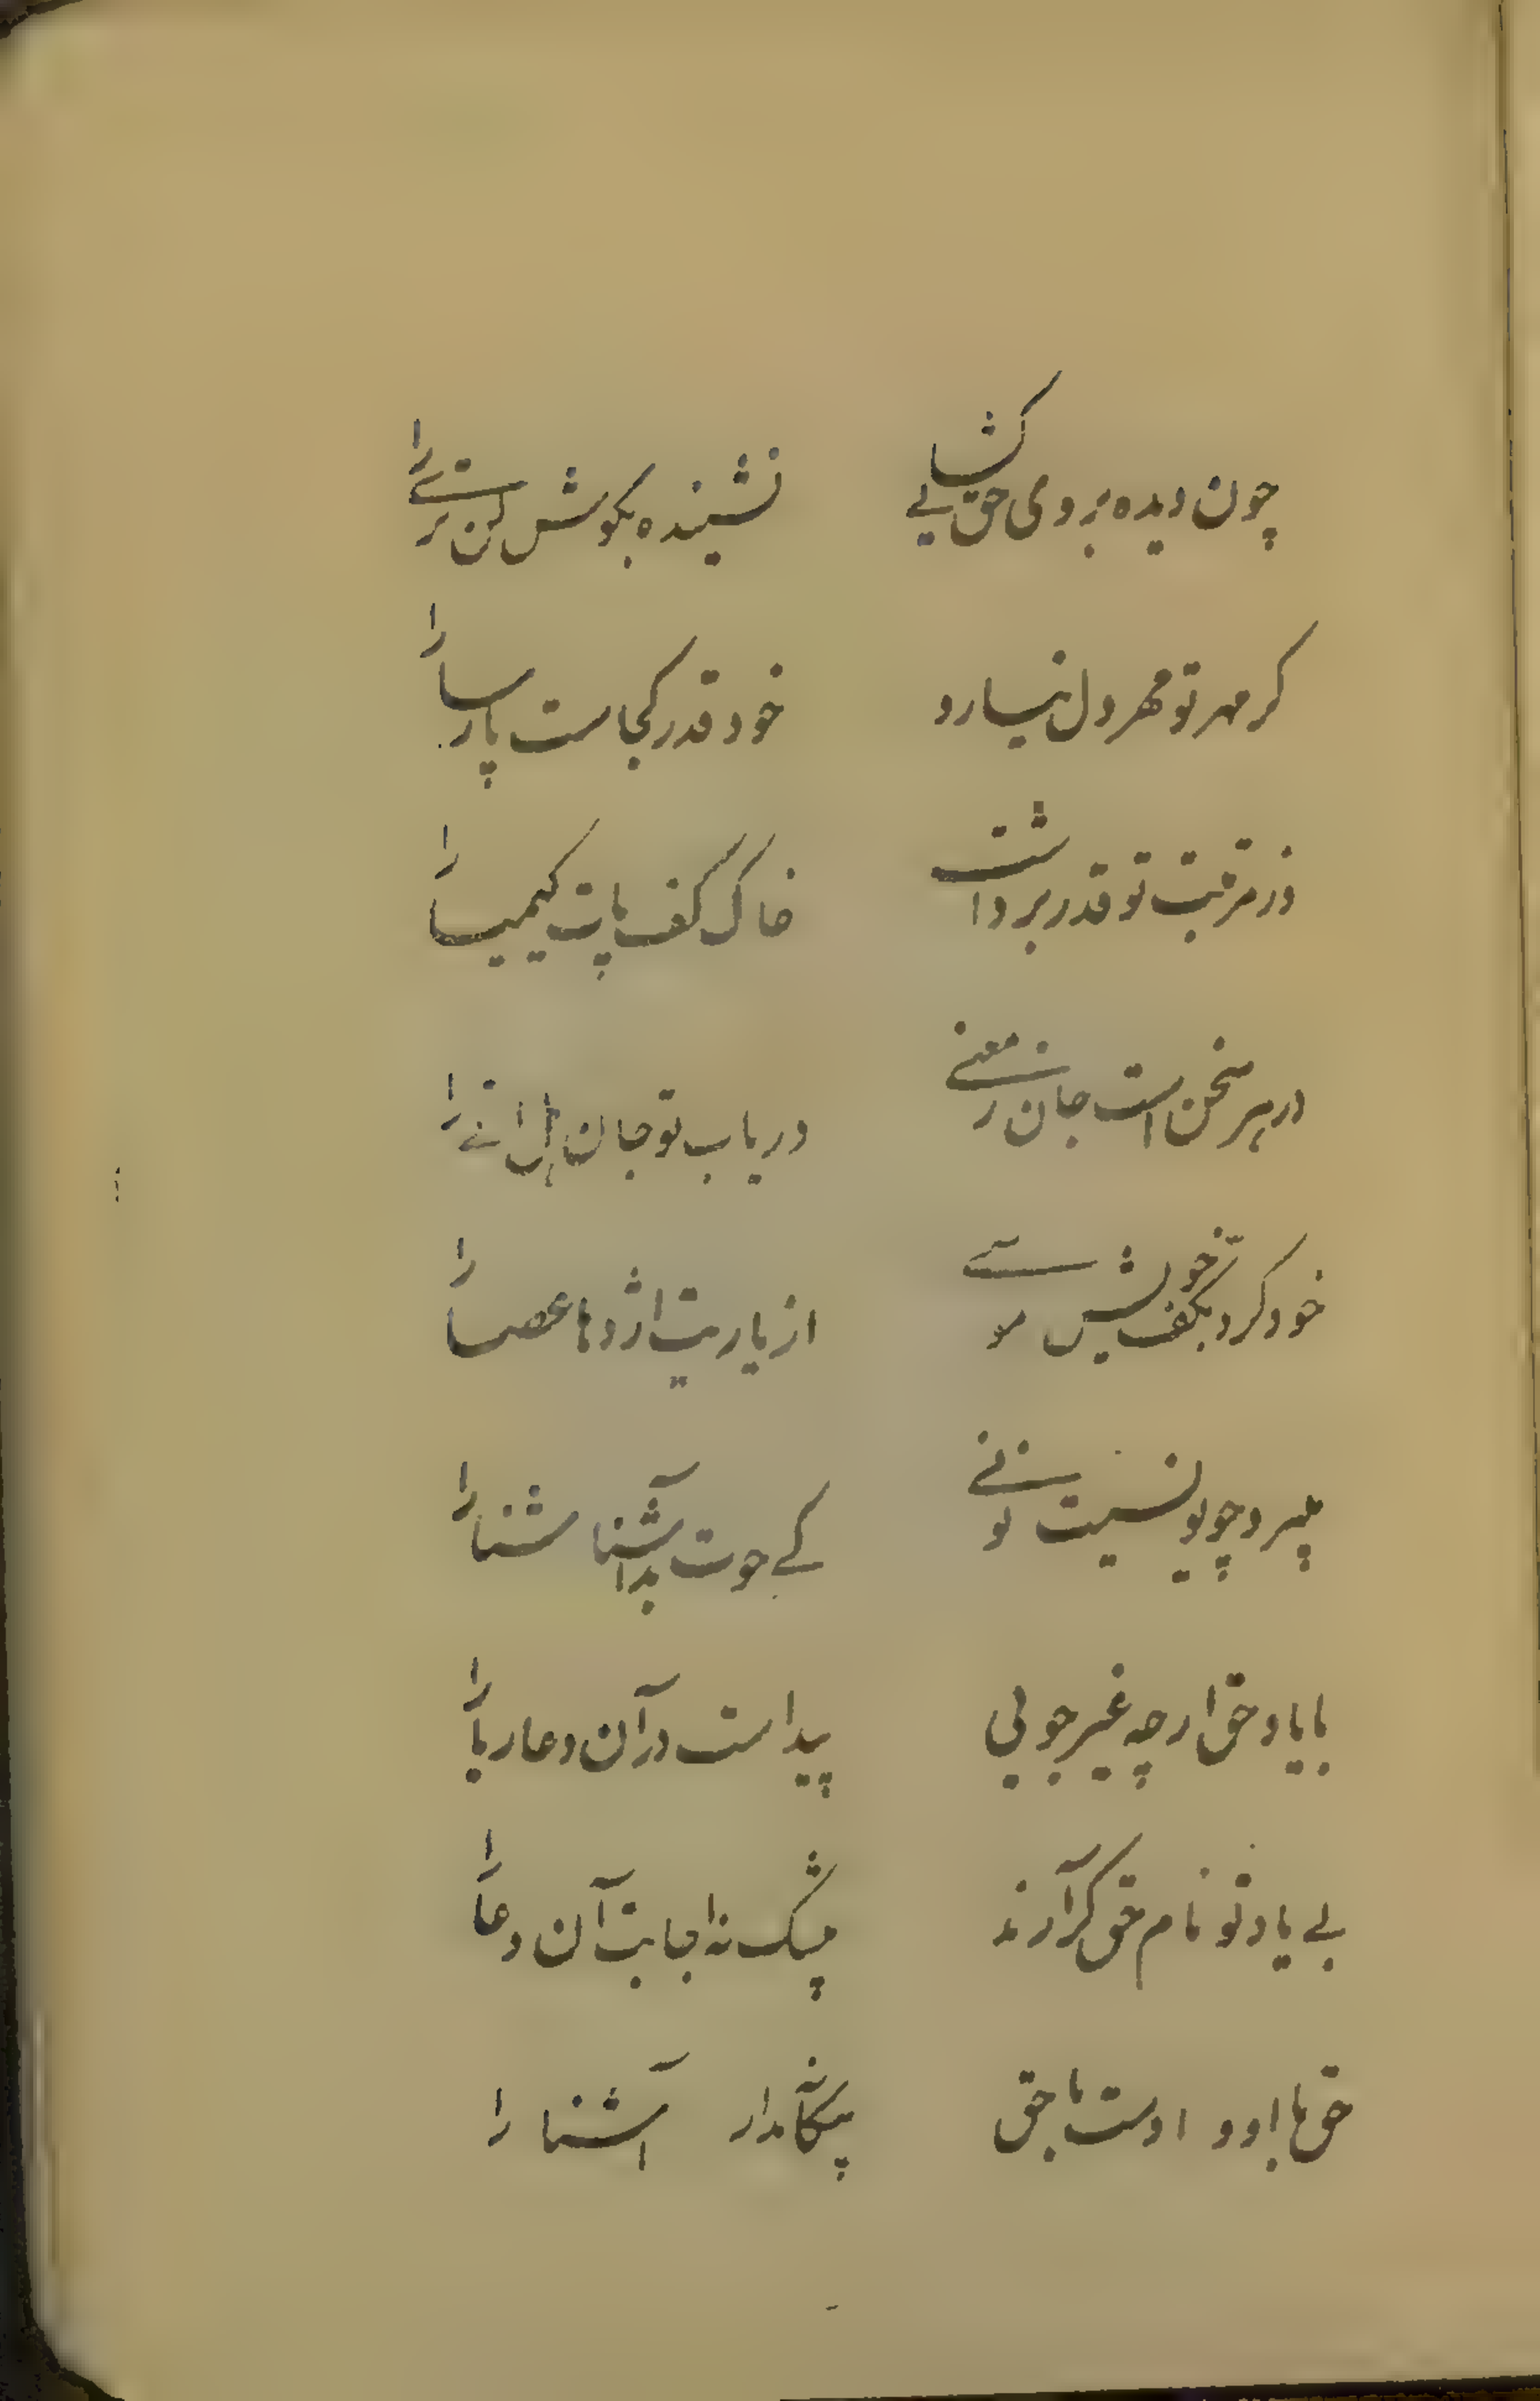 چون دیده بروی حق کشایی نشینده بکوش کن را
کر مهر تو مهر دل نیارد خود قدر کجاست پارسا را
در مرتبت تو قدر برداشت خاک کف پات کیمیا را
در هر سخن است جان معنے دریاب تو جان را
خود کرد بکف خویش از یاریت اژدها عصا را
چو نیست کے آشنا را
با یاد حق ار چه غیر جویی پیداست در آن دعا ریا را
بے یاد تو نام حق کر آرند بیشک نه اجابت آن دعا را
حق با او و اوست با حق بیکانه مدار آشنا را